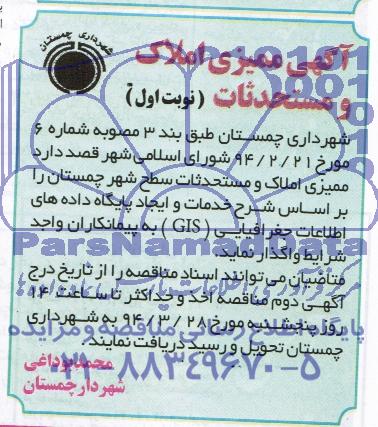 شهرداری چمستان
آگهی ممیزی املاک
و مستحدثات (نوبت اول)
شهرداری چمستان طبق بند ۳ مصوبه شماره ۶
مورخ ۹۴/۲/۲۱ شورای اسلامی شهر قصد دارد
ممیزی املاک و مستحدثات سطح شهر چمستان را
بر اساس شرح خدمات و ایجاد پایگاه داده های
اطلاعات جغرافیایی (GIS) به پیمانکاران واجد
شرایط واگذار نماید.
ParsNamadData
متقاضیان می توانند اسناد مناقصه را از تاریخ درج
آگهی دوم مناقصه اخذ و حداکثر تا ساعت ۱۴
روز پنجشنبه مورخ ۹۴/۳/۲۸ به شهرداری
چمستان تحویل و رسید دریافت نمایند.
۰۲۱-۸۸۳۴۹۶۷۰-۵
محمد بوداغی
شهردار چمستان